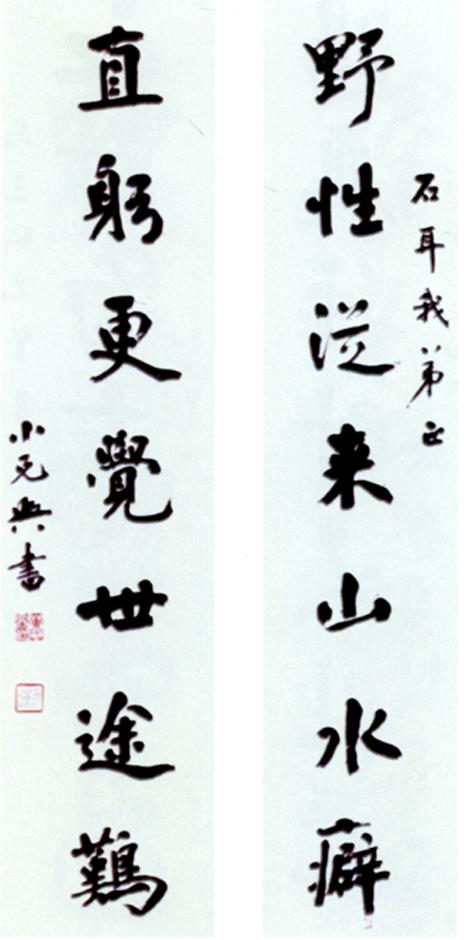 石耳我弟正
野性從来山水癖
直躬更覺世途難
小兄書